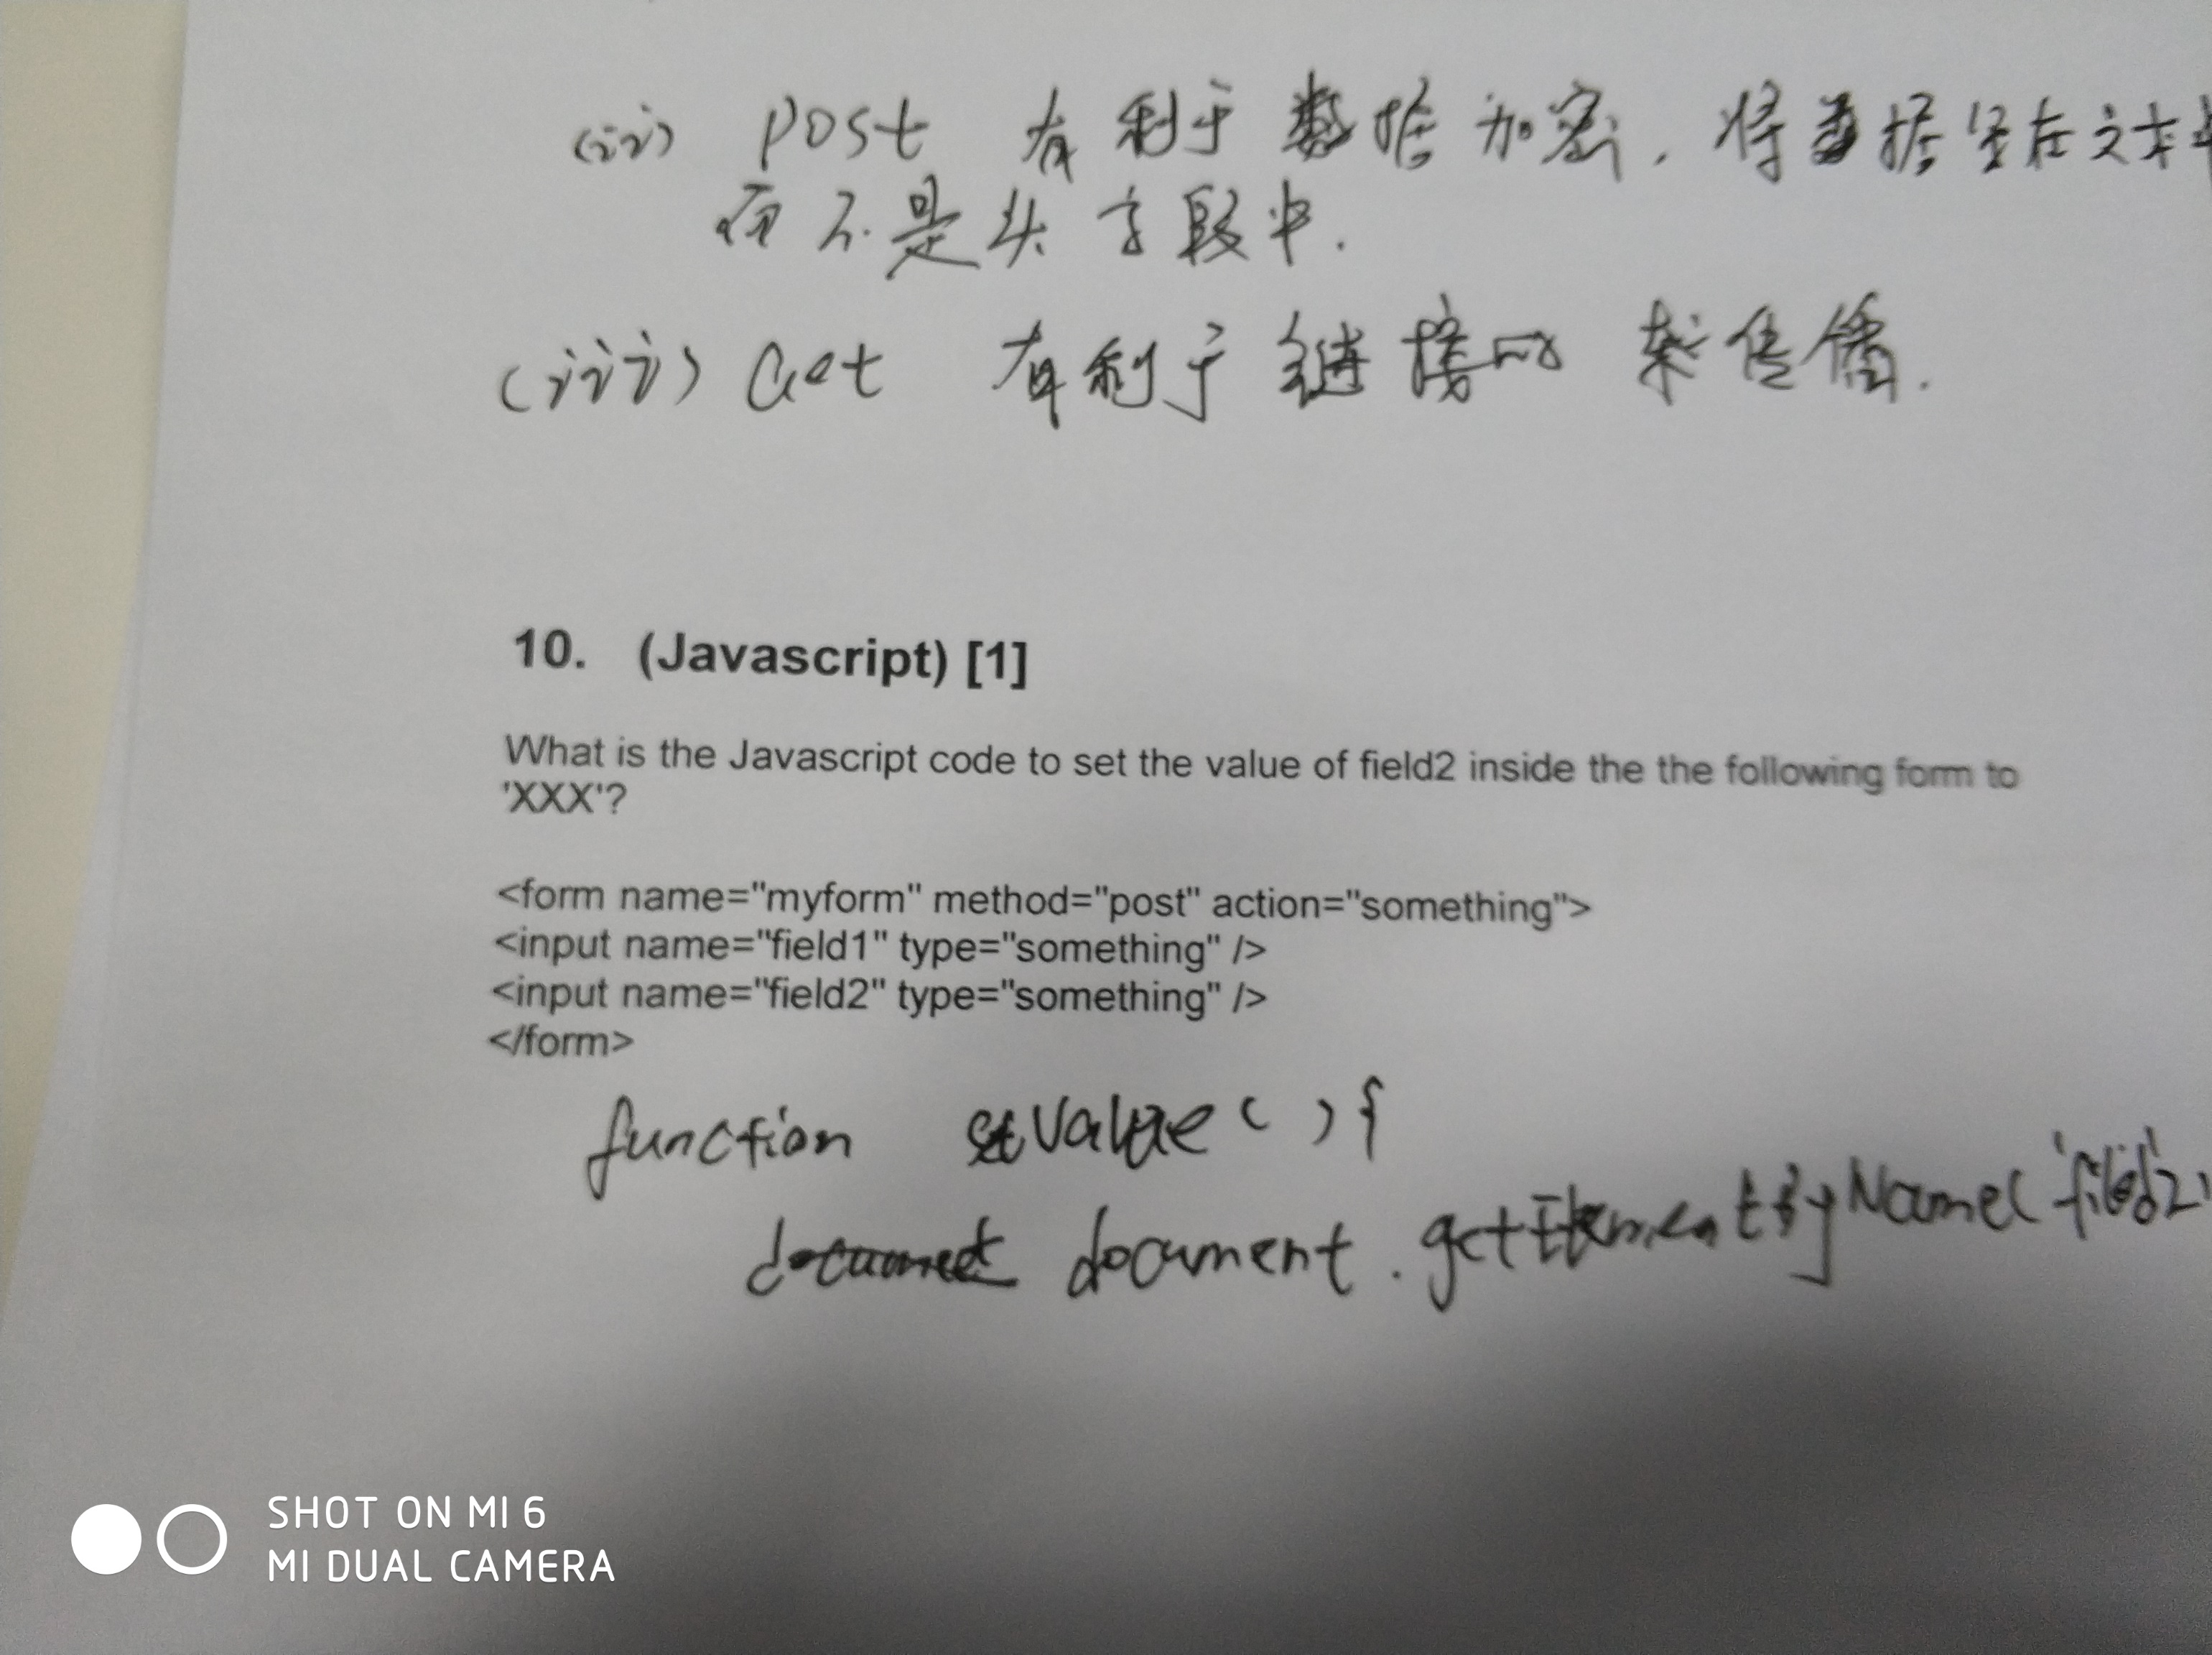 (ii) post 有利于数据加密, 将数据包在文本中
而不是头字段中.
(iii) Get 有利于链接的 传播.
10. (Javascript) [1]
What is the Javascript code to set the value of field2 inside the the following form to
'XXX'?
<form name="myform" method="post" action="something">
<input name="field1" type="something" />
<input name="field2" type="something" />
</form>
function setValue( ){
document . getElementByName('field2'
SHOT ON MI 6
MI DUAL CAMERA